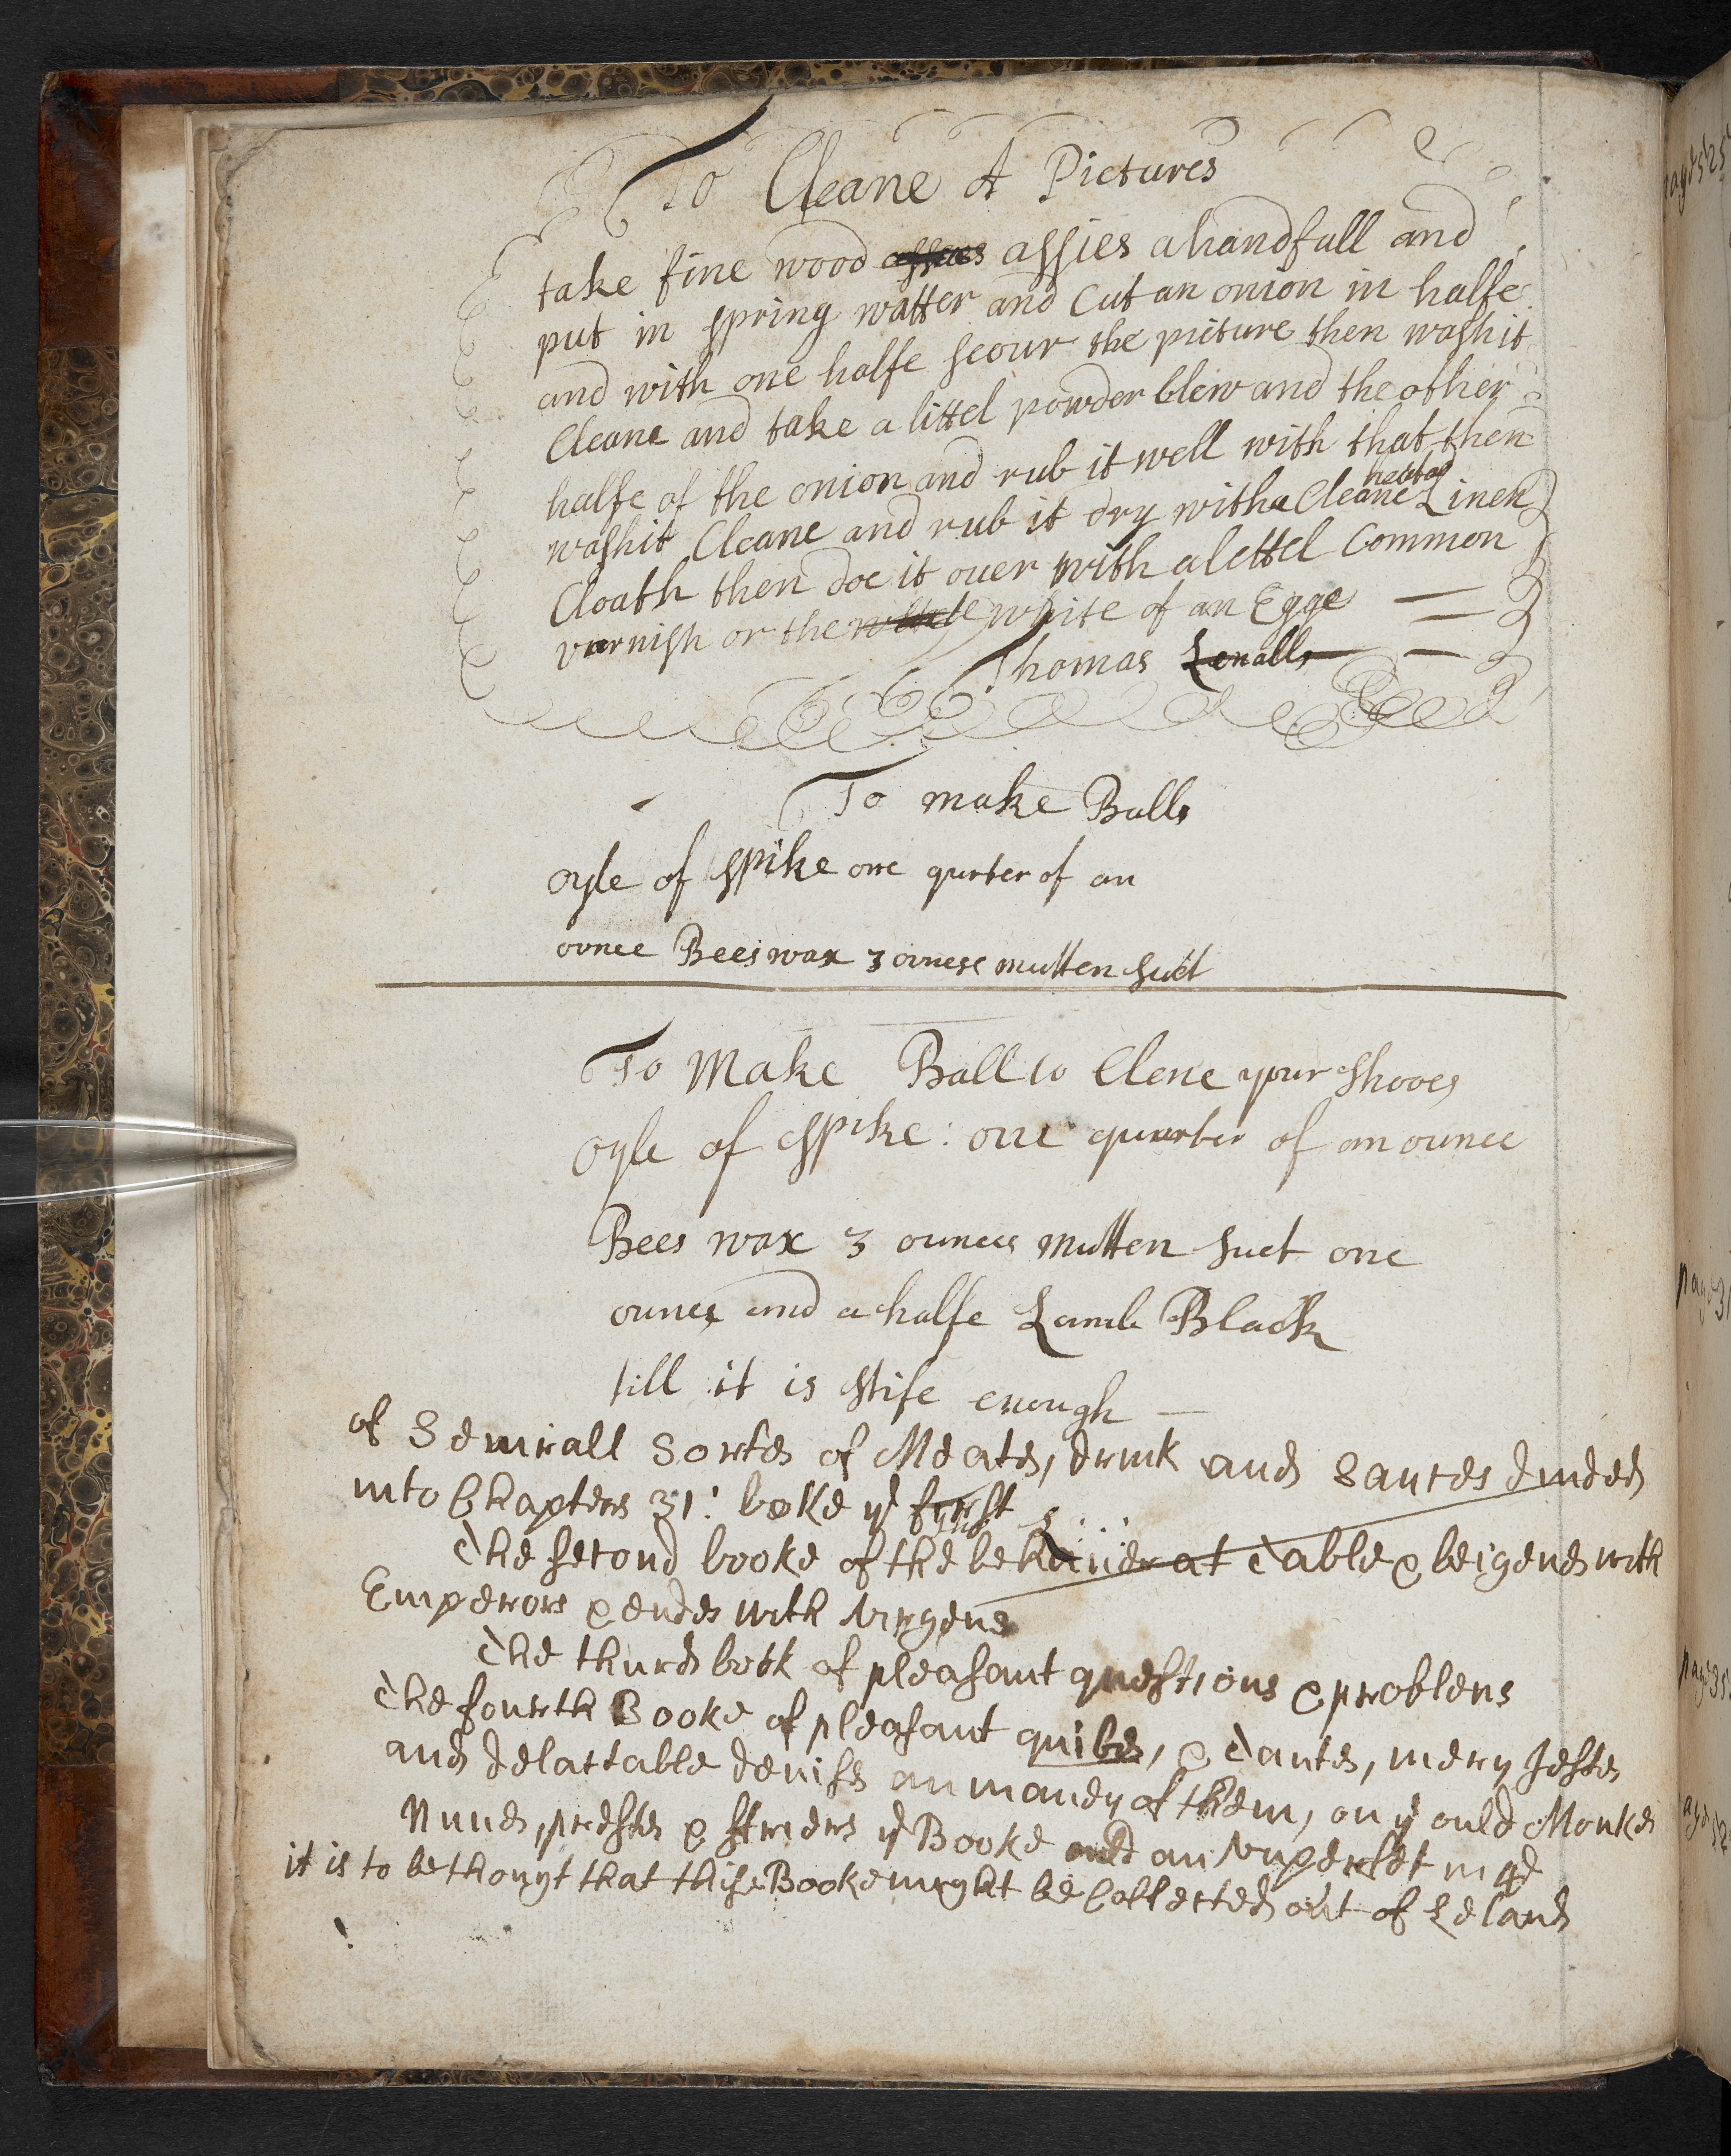 To Cleane A Pictures
take fine wood assies a handfull and
put in spring watter and Cut an onion in halfe
and with one halfe scour the picture then washit
Cleane and take a littel powder blew and the other
halfe of the onion and rub it well with that then
washit Cleane and rub it dry with a Cleane Linen
Cloath then doe it ouer with a lettel Common
varnish or the white of an Egge
Thomas
To make Balls
oyle of spike one qurter of an
ounce Bees wax 3 ounese mutten suet
To Make Ball to Clene your Shooes
oyle of spike: one quarter of an ounce
Bees wax 3 ounces mutten suet one
ounce and a halfe Lamb Black
till it is stife enough
of Seuirall Sortes of Meates, drink and Sauces deuided
into Chapters 31: boke ye first
The second booke of the behauier at Table & beigenes with
Emperors & endes with Virgens
The thurd book of pleasant questions & problens
The fourth Booke of pleasant quibes, & Tantes, mery Jestes
and delactable deuises an maney of them, on ye ould Monkes
Nunes, prestes & ffriers ye Booke ould an
it is to be thougt that thise Booke myght be Collected out of Leland
page 525